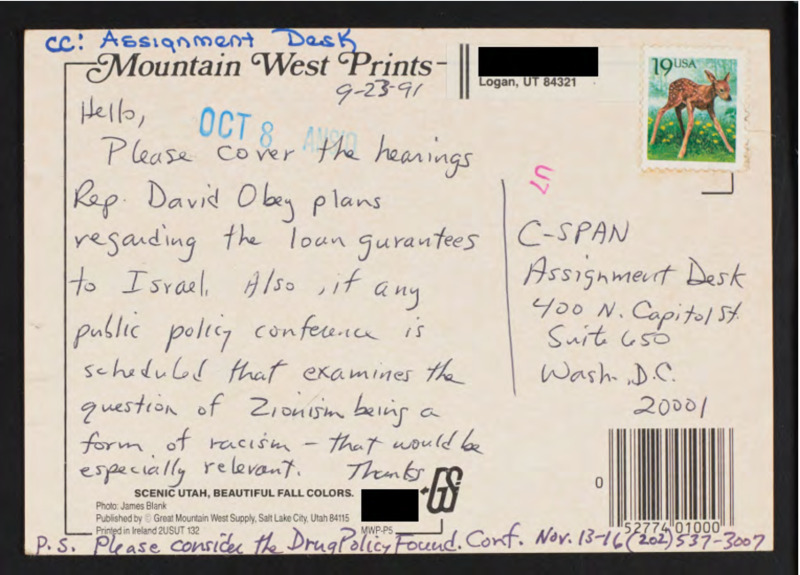 cc: Assignment Desk
Mountain West Prints
9-23-91
Hello,
OCT 8
Please cover the hearings
Rep. David Obey plans
regarding the loan gurantees
to Israel. Also, if any
public policy conference is
scheduled that examines the
question of Zionism being a
form of racism - that would be
especially relevant. Thanks
SCENIC UTAH, BEAUTIFUL FALL COLORS.
Photo: James Blank
Published by © Great Mountain West Supply, Salt Lake City, Utah 84115
Printed in Ireland 2USUT 132
MWP-P5
P.S. Please consider the Drug Policy Found. Conf. Nov. 13-16 (202) 537-3007
Logan, UT 84321
19 USA
U7
C-SPAN
Assignment Desk
400 N. Capitol St.
Suite 650
Wash., D.C.
20001
0
52774 01000